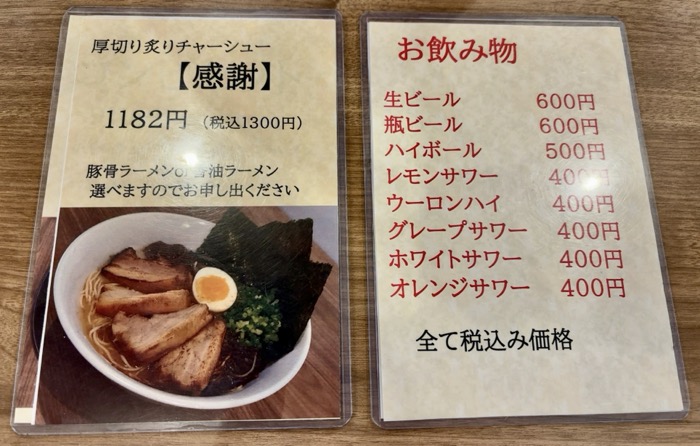 厚切り炙りチャーシュー
【感謝】
1182円 (税込1300円)
豚骨ラーメンor醤油ラーメン
選べますのでお申し出ください
お飲み物
生ビール 600円
瓶ビール 600円
ハイボール 500円
レモンサワー 400円
ウーロンハイ 400円
グレープサワー 400円
ホワイトサワー 400円
オレンジサワー 400円
全て税込み価格